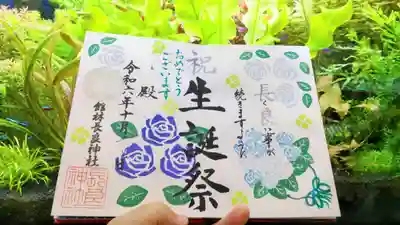 長く良い事が
続きますように
生誕祭
祝
おめでとう
ございます
殿
令和六年十月
館林長良神社